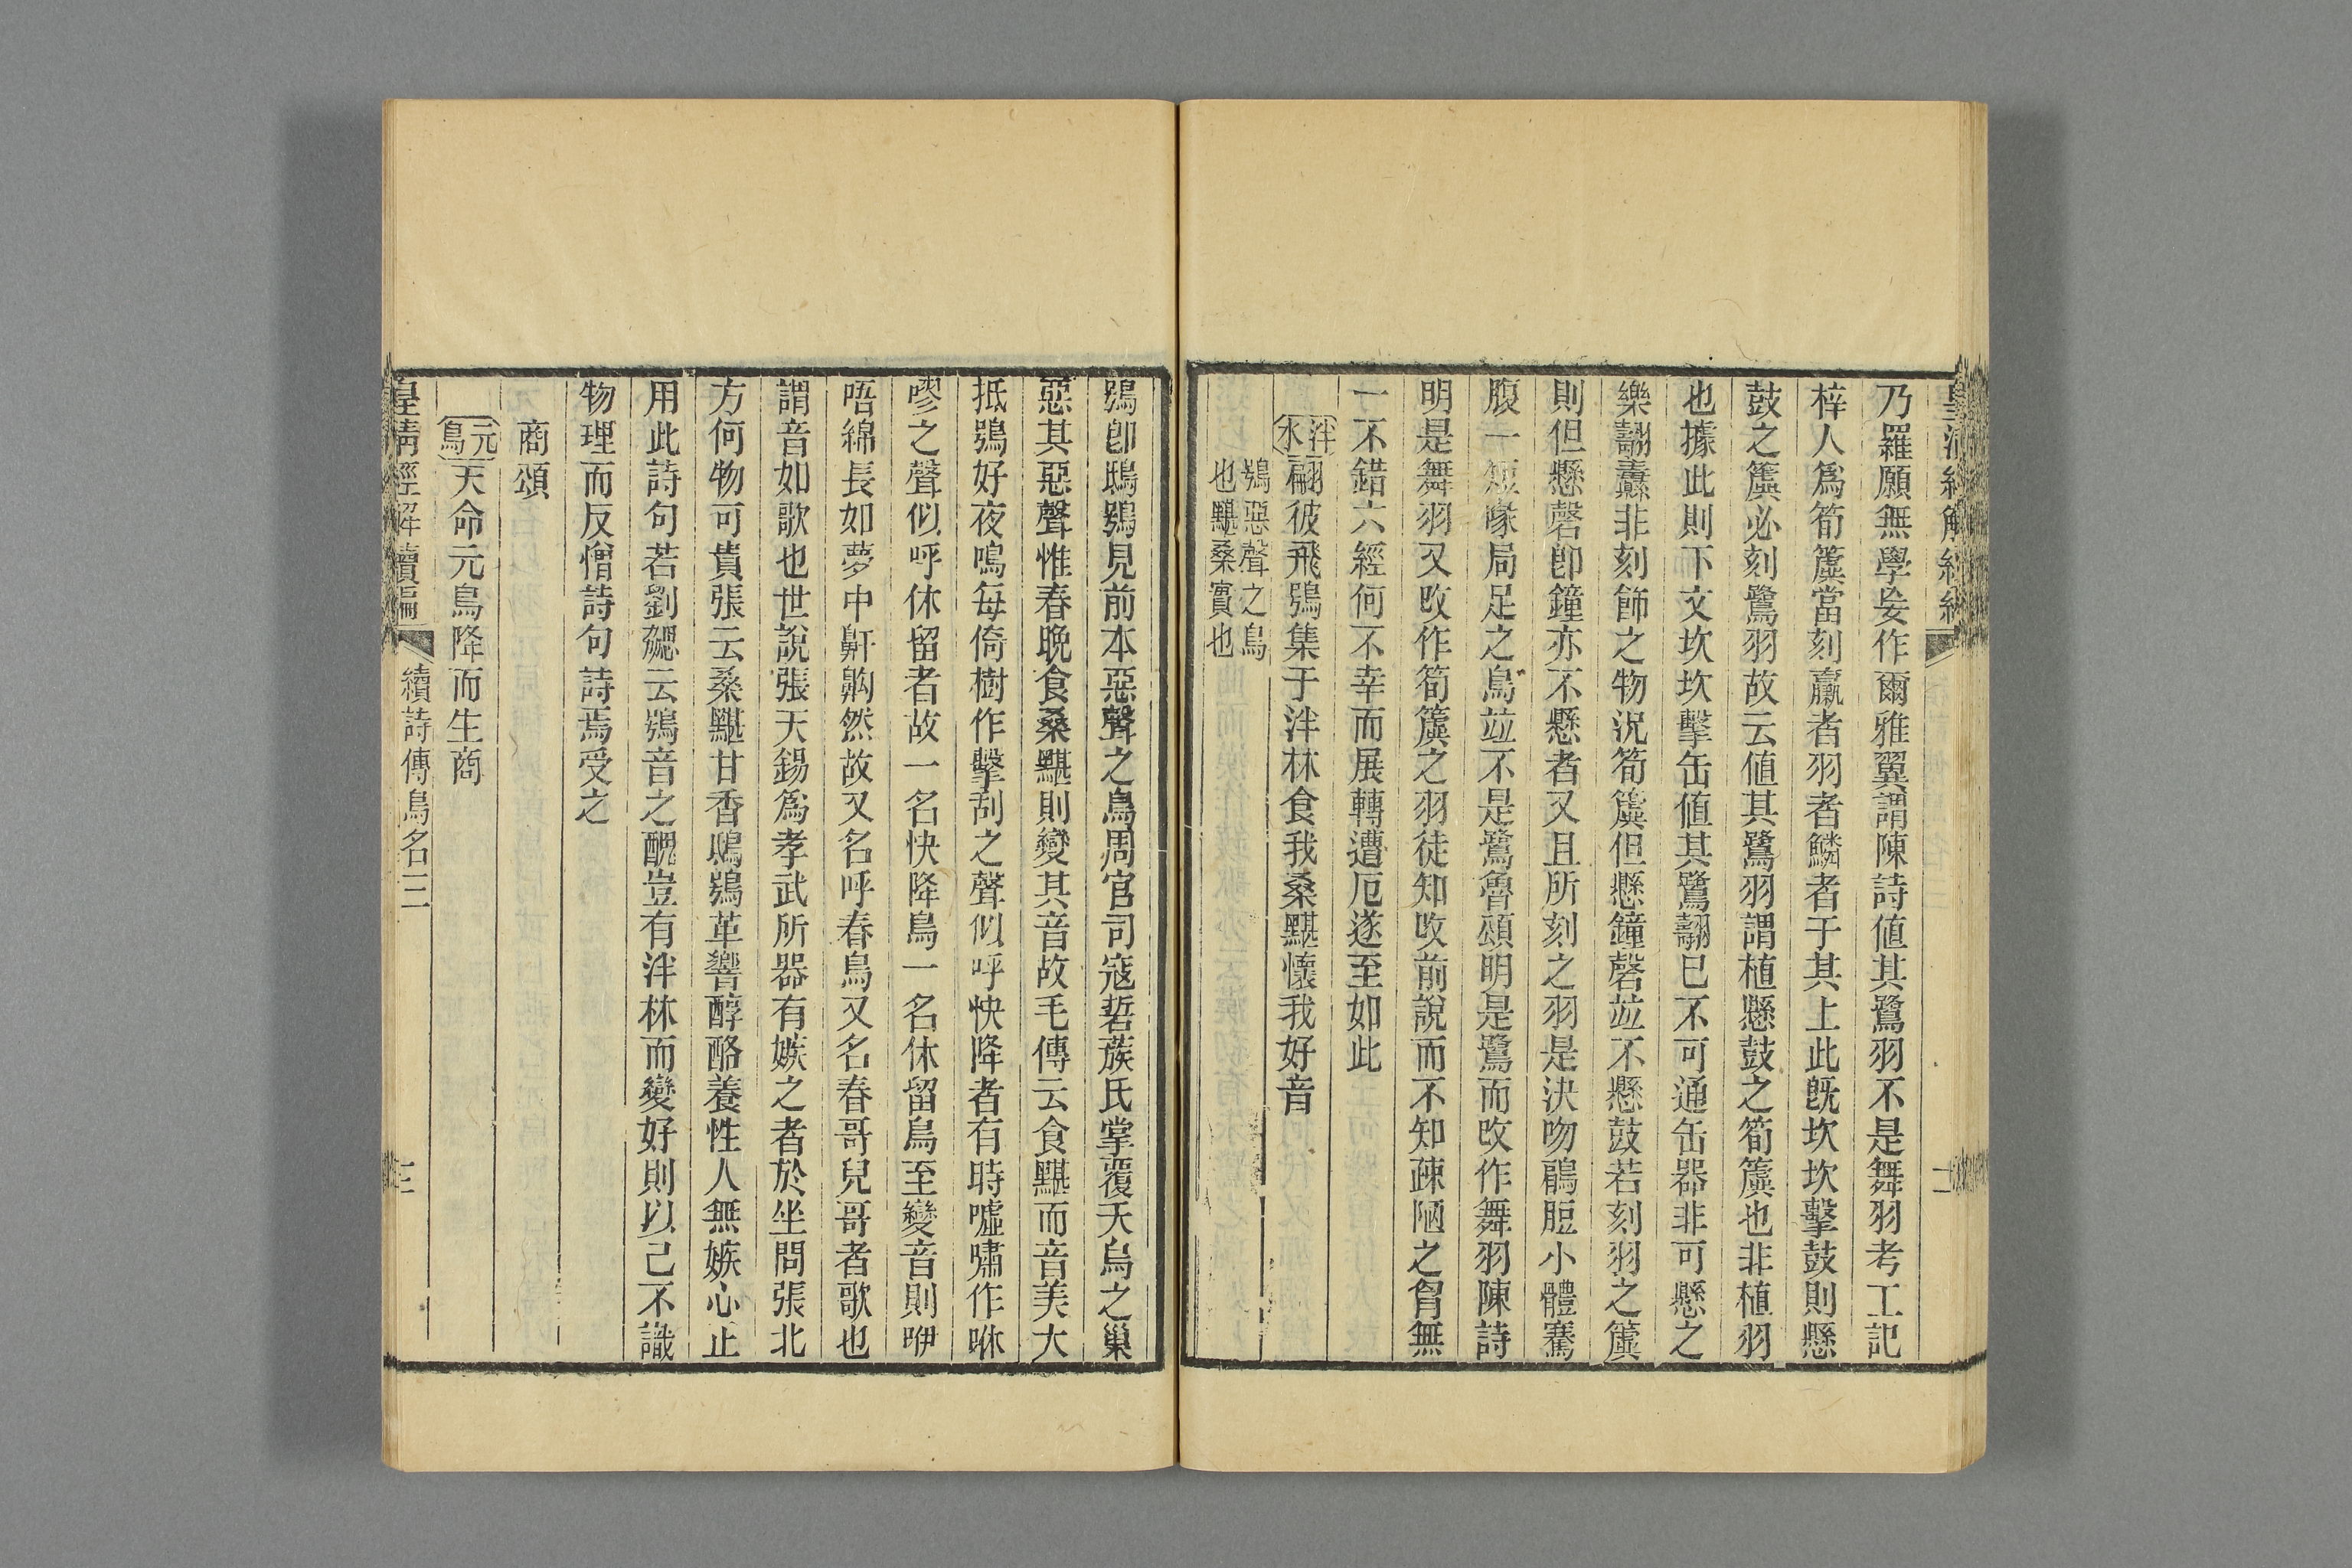 乃羅願無學妄作爾雅翼謂陳詩値其鷺羽不是舞羽考工記
梓人爲筍簴當刻臝者羽者鱗者于其上此既坎坎擊鼓則懸
鼓之簴必刻鷺羽故云値其鷺羽謂植懸鼓之筍簴也非植羽
也據此則下文坎坎擊缶値其鷺翿已不可通缶器非可懸之
樂翿纛非刻飾之物況筍簴但懸鐘磬竝不懸鼓若刻羽之簴
則但懸磬卽鐘亦不懸者又且所刻之羽是決吻鶥脰小體騫
腹一短喙局足之鳥竝不是鷺魯頌明是鷺而改作舞羽陳詩
明是舞羽又改作筍簴之羽徒知改前說而不知疎陋之胷無
一不錯六經何不幸而展轉遭厄遂至如此
泮水翩彼飛鴞集于泮林食我桑黮懷我好音
鴞惡聲之鳥
也黮桑實也
鴞卽鴟鴞見前本惡聲之鳥周官司寇硩蔟氏掌覆夭鳥之巢
惡其惡聲惟春晩食桑黮則變其音故毛傳云食黮而音美大
抵鴞好夜鳴每倚樹作擊刮之聲似呼快降者有時噓嘯作咻
嘐之聲似呼休留者故一名快降鳥一名休留鳥至變音則咿
唔綿長如夢中鼾齁然故又名呼春鳥又名春哥兒哥者歌也
謂音如歌也世說張天錫爲孝武所器有嫉之者於坐問張北
方何物可貴張云桑黮甘香鴟鴞革響醇酪養性人無嫉心正
用此詩句若劉勰云鴞音之醜豈有泮林而變好則以己不識
物理而反僧詩句詩焉受之
商頌
元鳥天命元鳥降而生商
皇清經解續編
續詩傳鳥名三
三